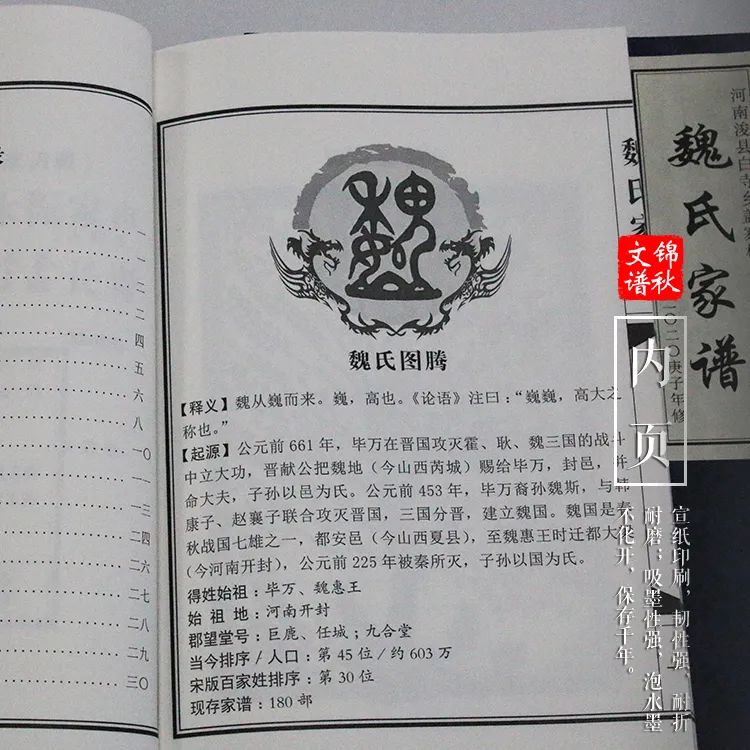 魏氏图腾
【释义】魏从巍而来。巍，高也。《论语》注曰：“巍巍，高大之
称也。”
【起源】公元前 661 年，毕万在晋国攻灭霍、耿、魏三国的战斗
中立大功，晋献公把魏地（今山西芮城）赐给毕万，封邑，并
命大夫，子孙以邑为氏。公元前 453 年，毕万裔孙魏斯，与韩
康子、赵襄子联合攻灭晋国，三国分晋，建立魏国。魏国是春
秋战国七雄之一，都安邑（今山西夏县），至魏惠王时迁都大
（今河南开封），公元前 225 年被秦所灭，子孙以国为氏。
得姓始祖：毕万、魏惠王
始祖地：河南开封
郡望堂号：巨鹿、任城；九合堂
当今排序 / 人口：第 45 位 / 约 603 万
宋版百家姓排序：第 30 位
现存家谱：180 部
一
一
二
二
四
五
六
八
一〇
一一
一三
二四
二六
二七
二八
二九
三〇
魏氏家
河南浚县白寺
魏氏家谱
二〇二〇庚子年修
锦秋
文谱
内页
宣纸印刷，韧性强，耐折
耐磨；吸墨性强，泡水墨
不化开，保存千年。